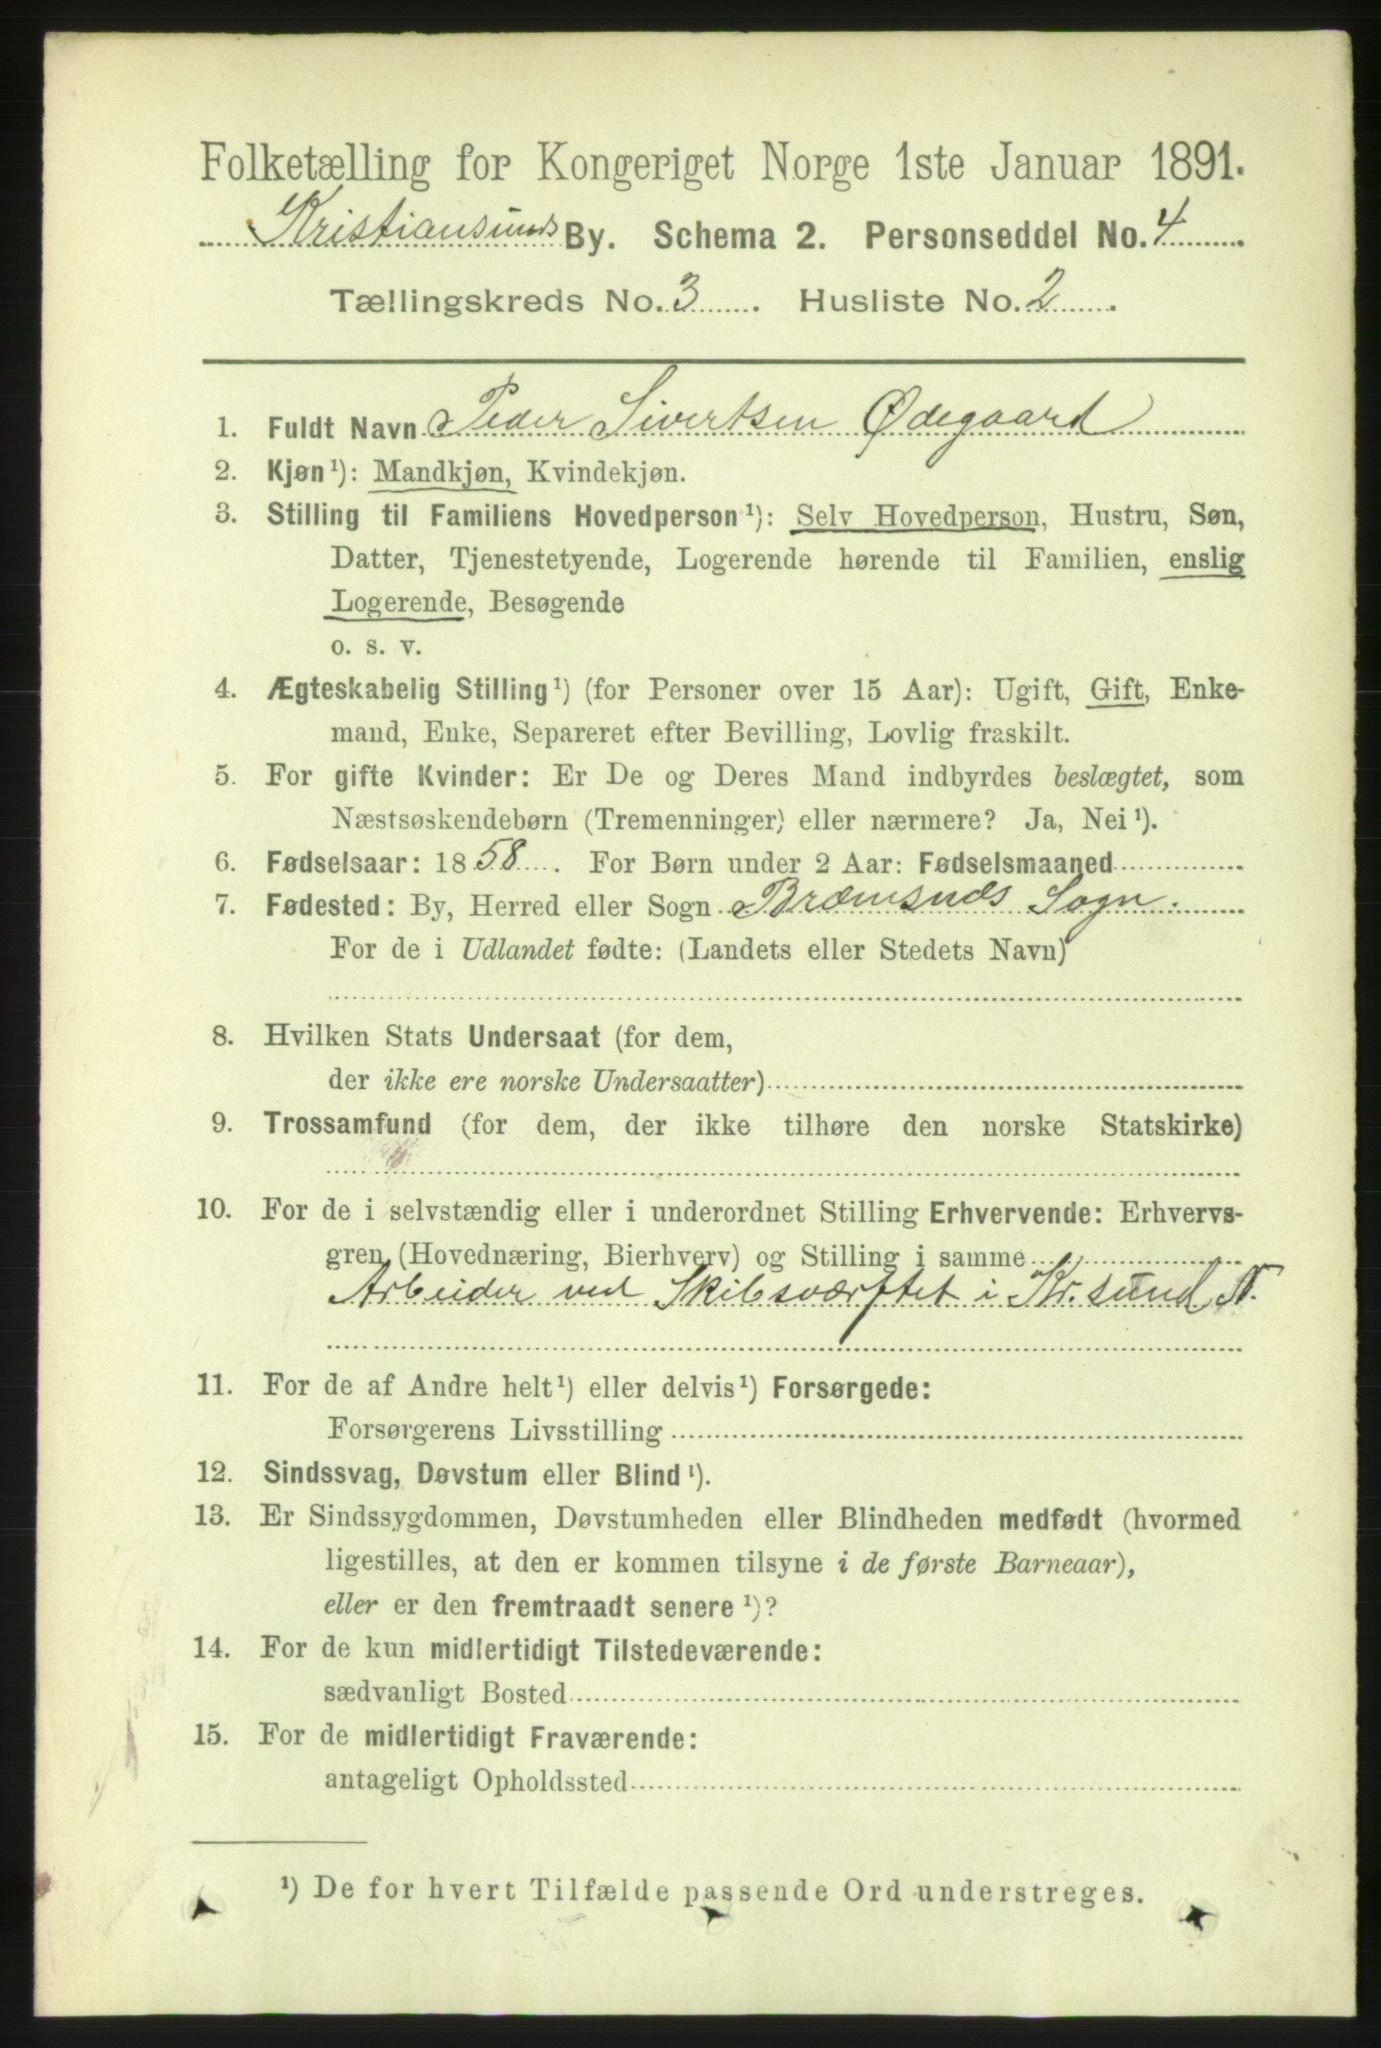 Folketælling for Kongeriget Norge 1ste Januar 1891.
Kristiansunds By. Schema 2. Personseddel No. 4
Tællingskreds No. 3 . Husliste No. 2 .
1. Fuldt Navn Peder Sivertsen Ødegaard
2. Kjøn¹): Mandkjøn, Kvindekjøn.
3. Stilling til Familiens Hovedperson¹): Selv Hovedperson, Hustru, Søn,
Datter, Tjenestetyende, Logerende hørende til Familien, enslig
Logerende, Besøgende
o. s. v.
4. Ægteskabelig Stilling¹) (for Personer over 15 Aar): Ugift, Gift, Enke-
mand, Enke, Separeret efter Bevilling, Lovlig fraskilt.
5. For gifte Kvinder: Er De og Deres Mand indbyrdes beslægtet, som
Næstsøskendebørn (Tremenninger) eller nærmere? Ja, Nei¹).
6. Fødselsaar: 1858 . For Børn under 2 Aar: Fødselsmaaned
7. Fødested: By, Herred eller Sogn Bræmsnes Sogn.
For de i Udlandet fødte: (Landets eller Stedets Navn)
8. Hvilken Stats Undersaat (for dem,
der ikke ere norske Undersaatter)
9. Trossamfund (for dem, der ikke tilhøre den norske Statskirke)
10. For de i selvstændig eller i underordnet Stilling Erhvervende: Erhvervs-
gren (Hovednæring, Bierhverv) og Stilling i samme
Arbeider ved Skibsværftet i Kr.sund N.
11. For de af Andre helt¹) eller delvis¹) Forsørgede:
Forsørgerens Livsstilling
12. Sindssvag, Døvstum eller Blind¹).
13. Er Sindssygdommen, Døvstumheden eller Blindheden medfødt (hvormed
ligestilles, at den er kommen tilsyne i de første Barneaar),
eller er den fremtraadt senere¹)?
14. For de kun midlertidigt Tilstedeværende:
sædvanligt Bosted
15. For de midlertidigt Fraværende:
antageligt Opholdssted
¹) De for hvert Tilfælde passende Ord understreges.